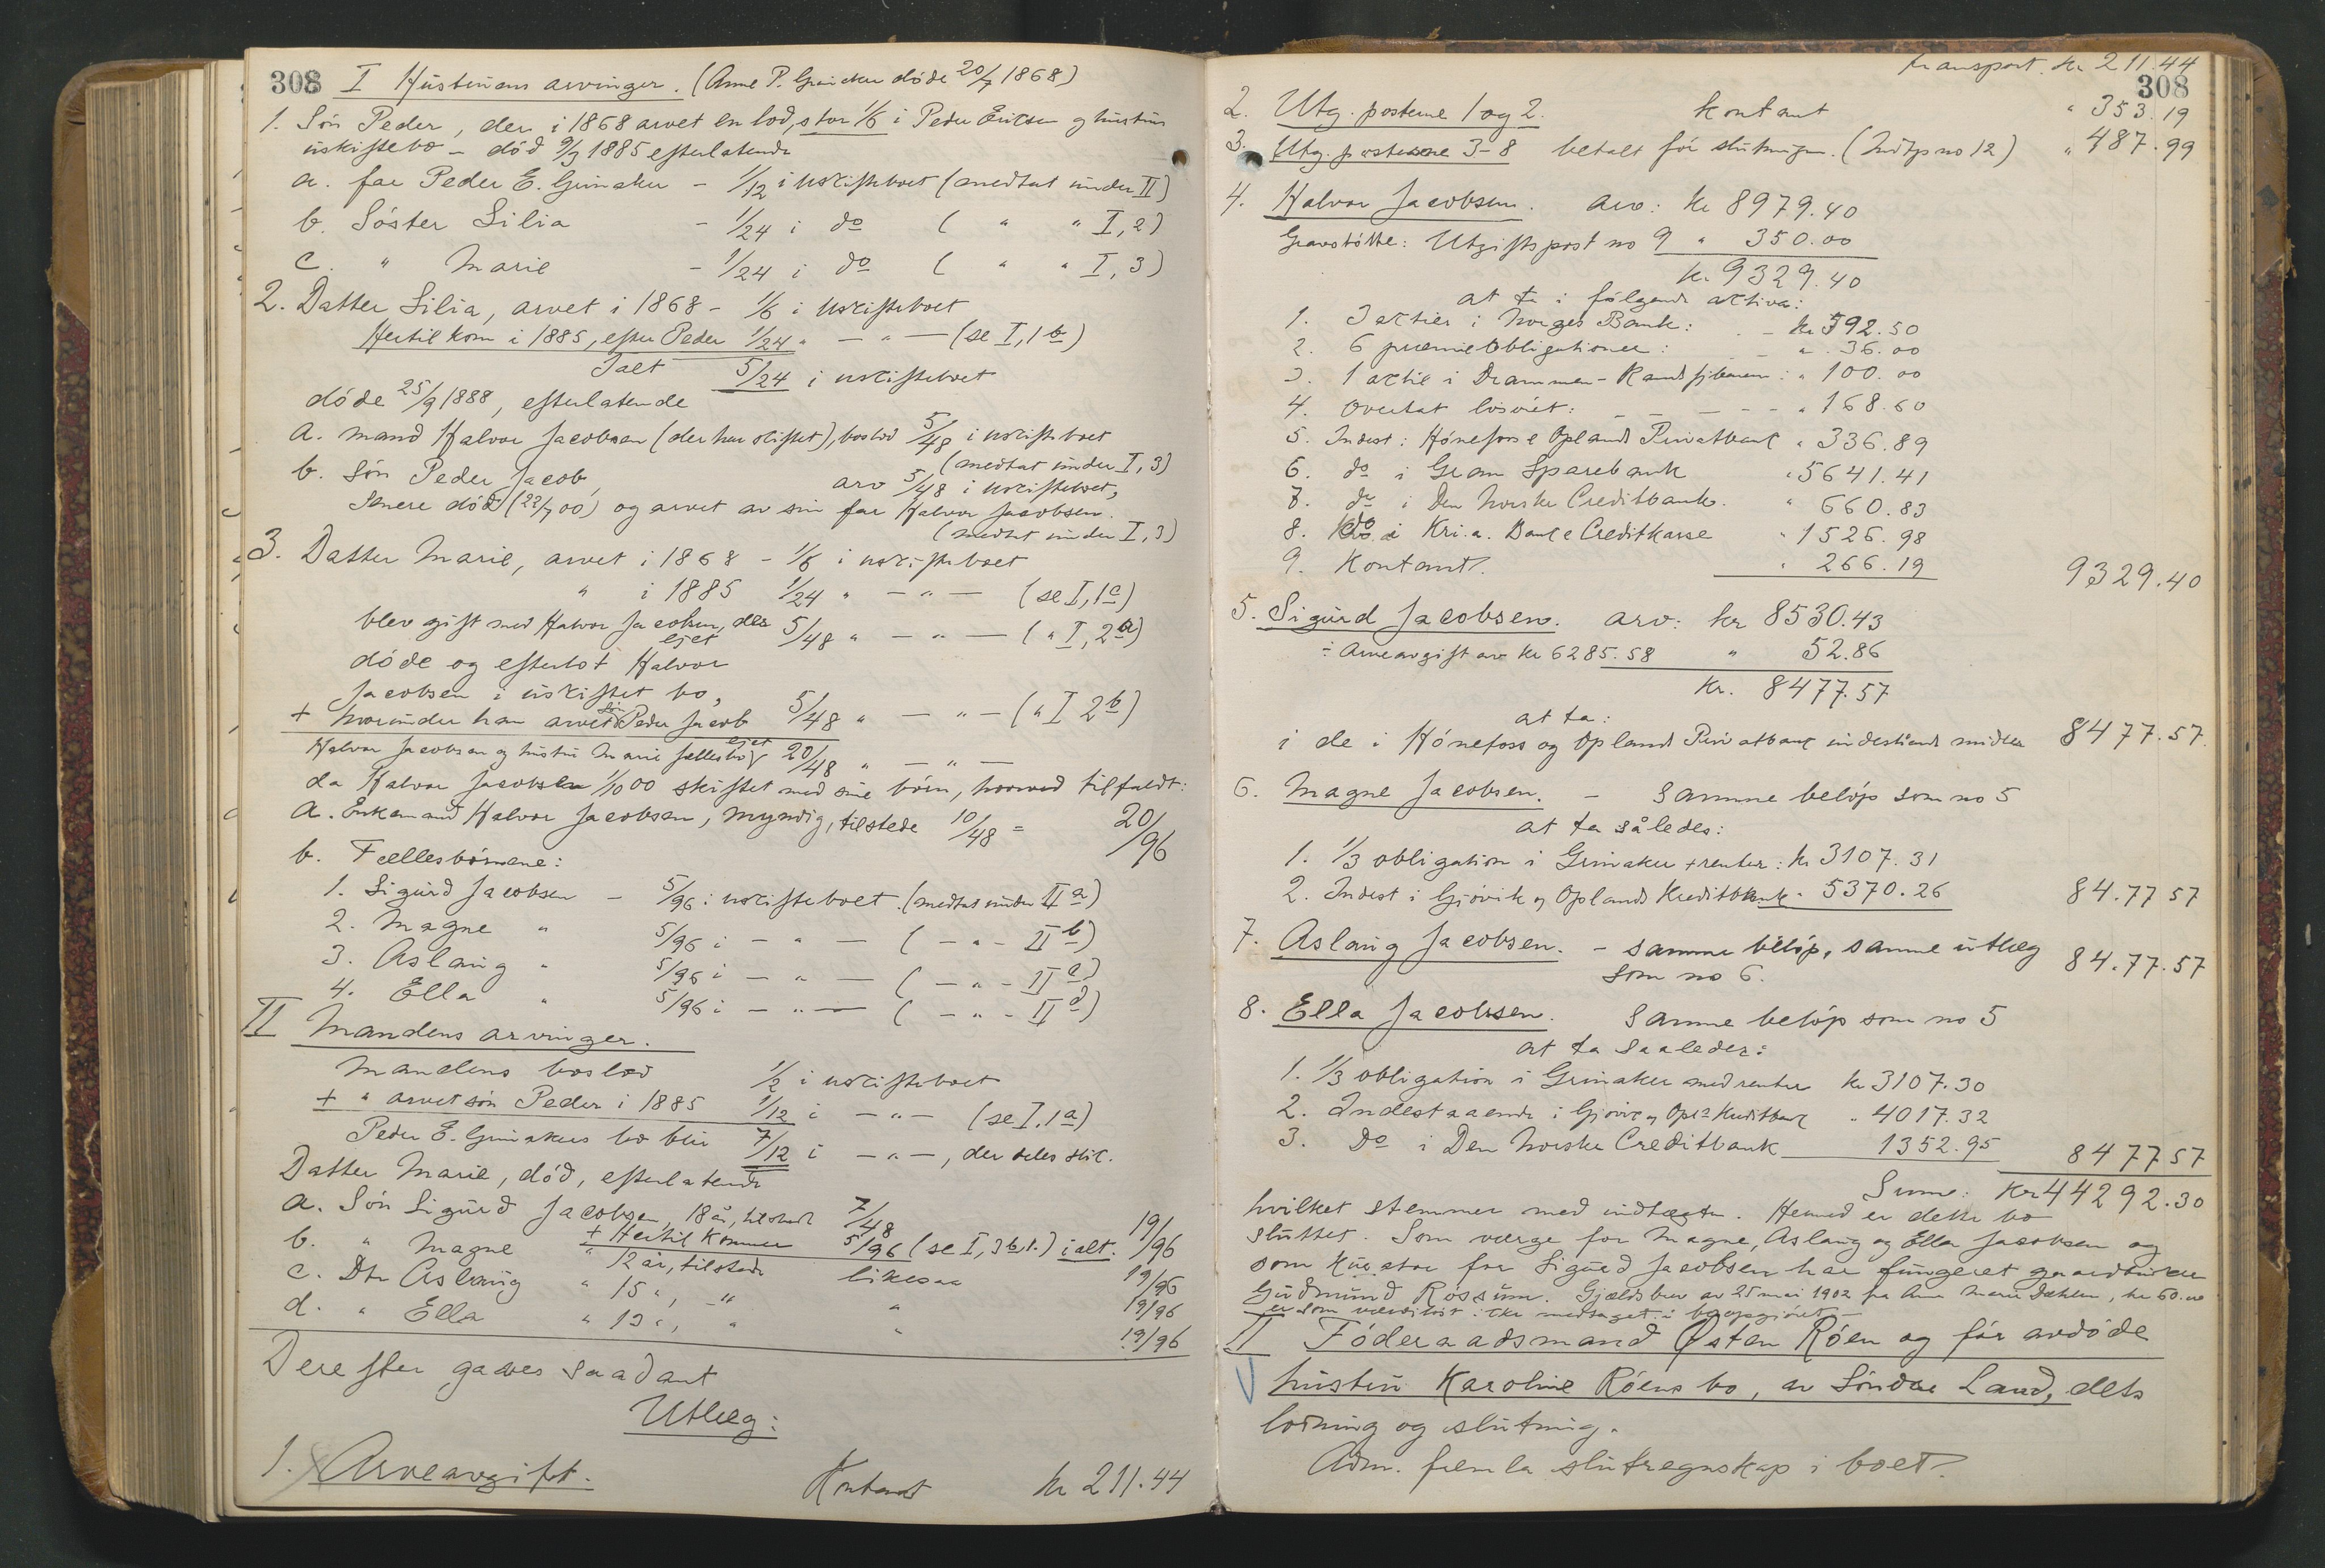 308 I Hustruens arvinger. (Anne P. Grinaker døde 20/7 1868)
1. Søn Peder, der i 1868 arvet en lod, stor 1/6 i Peder Ericsen og hustrus
uskiftebo - død 9/3 1885 efterlatende
a. far Peder E. Grinaker - 1/12 i uskifteboet (medtat under II)
b. Søster Silia - 1/24 i do ( " " I, 2)
c. " Marie - 1/24 i do ( " " I, 3)
2. Datter Silia, arvet i 1868 - 1/6 i uskifteboet
Hertil kom i 1885, efter Peder 1/24 " - " - (se I, 1 b)
Ialt 5/24 i uskifteboet
døde 25/9 1888, efterlatende
a. mand Halvor Jacobsen (der har skiftet), boslod 5/48 i uskifteboet
(medtat under I, 3)
b. Søn Peder Jacob, arv 5/48 i uskifteboet,
Senere død (22/7 00) og arvet av sin far Halvor Jacobsen.
(medtat under I, 3)
3. Datter Marie, arvet i 1868 - 1/6 i uskifteboet
" i 1885 1/24 " - " - (se I, 1 c)
blev gift med Halvor Jacobsen, der ejet 5/48 " - " - ( " I, 2 a)
døde og efterlot Halvor
Jacobsen i uskiftet bo,
+ hvorunder han arvet søn Peder Jacob 5/48 " - " - ( " I 2 b)
Halvor Jacobsen og hustru Marie fællesbo ejet 20/48 " - " -
da Halvor Jacobsen 1/10 00 skiftet med sine børn, hvorved tilfaldt:
a. Enkemand Halvor Jacobsen, myndig, tilstede 10/48 = 20/96
b. Fællesbørnene:
1. Sigurd Jacobsen - 5/96 i uskifteboet. (medtat under II a)
2. Magne " 5/96 i - " - ( - " - II b)
3. Aslaug " 5/96 i - " - ( - " - II c)
4. Ella " 5/96 i - " - ( - " - II d)
II Mandens arvinger.
Mandens boslod 1/2 i uskifteboet
+ " arvet søn Peder i 1885 1/12 i - " - (se I, 1 a)
Peder E. Grinakers bo blir 7/12 i - " -, der deles slik.
Datter Marie, død, efterlatende
a. Søn Sigurd Jacobsen, 18 år, tilstede 7/48
+ Hertil kommer 5/96 (se I, 3 b, 1.) ialt. 19/96
b. " Magne " 12 år, tilstede likesaa 19/96
c. Dtr Aslaug " 15 ", - " " 19/96
d. " Ella " 13 ", " " 19/96
Derefter gaves saadant
Utlæg:
1. Arveavgift. Kontant kr 211.44
transport. kr 211.44
308
2. Utg. posterne 1 og 2. kontant " 353.19
3. Utg. posterne 3-8 betalt før slutningen. (Indtp no 12) " 487.99
4. Halvor Jacobsen. arv: kr 8979.40
Gravstøtte: Utgiftspost no 9 " 350.00
kr. 9329.40
at ta i følgende aktiva:
1. 3 aktier i Norges Bank: - kr 592.50
2. 6 præmieobligationer: " 36.00
3. 1 aktie i Drammen-Randsfjbanen: " 100.00
4. Overtat løsøret: - - - - " 168.60
5. Indest: Hønefoss & Oplands Privatbank " 336.89
6. do i Gran Sparebank " 5641.41
7. do i Den Norske Creditbank. " 660.83
8. do i Kri.a. Bank & Creditkasse " 1526.98
9. Kontant. " 266.19 9329.40
5. Sigurd Jacobsen. arv: kr 8530.43
÷ Arveavgift av kr 6285.58 " 52.86
kr. 8477.57
at ta:
i de i Hønefoss og Oplands Privatbank indestående midler 8477.57.
6. Magne Jacobsen. - Samme beløp som no 5
at ta således:
1. 1/3 obligation i Grinaker + renter: kr 3107.31
2. Indest i Gjøvik og Oplands Kreditbank " 5370.26 84.77 57
7. Aslaug Jacobsen. - samme beløp, samme utlæg
som no 6. 84.77.57
8. Ella Jacobsen. Samme beløp som no 5
at ta saaledes:
1. 1/3 obligation i Grinaker med renter kr 3107.30
2. Indestaaende i Gjøvik og Opl.s Kreditbank " 4017.32
3. Do i Den Norske Creditbank 1352.95 8477 57
Sum: Kr 44292.30
hvilket stemmer med indtægten. Hermed er dette bo
sluttet. Som værge for Magne, Aslaug og Ella Jacobsen og
som kurator for Sigurd Jacobsen har fungeret gaardbruker
Gudmund Røssum. Gjældsbrev av 25 mai 1902 fra Ane Marie Dæhlen, kr 60.00
er som værdiløst ikke medtaget i boopgjøret. -
II Føderaadsmand Østen Røen og før avdøde
hustru Karoline Røens bo, av Søndre Land, dets
lodning og slutning.
Adm. fremla slutregnskap i boet.